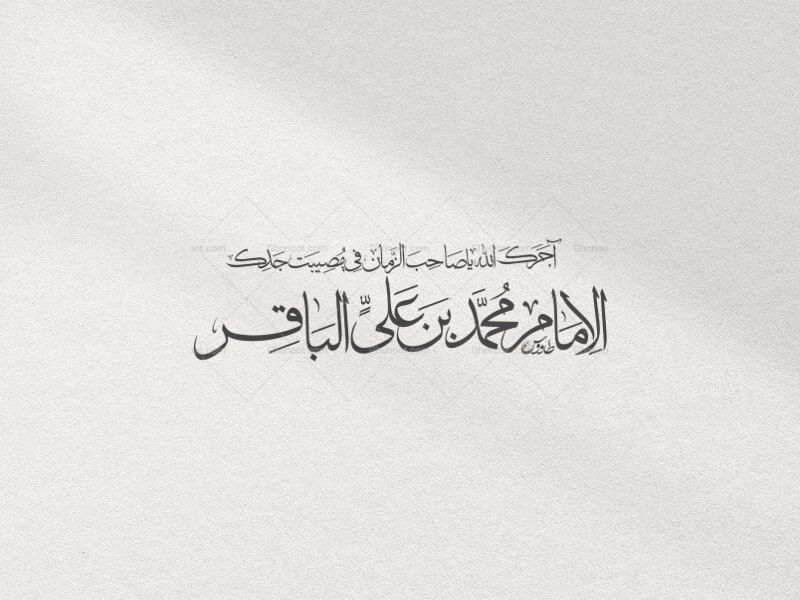 آجَرَكَ اللهُ يا صَاحِبَ الزَّمان في مُصِيبَتِ جَدِّكَ
الإمَامِ مُحَمَّدِ بنَ عَليٍّ البَاقِر